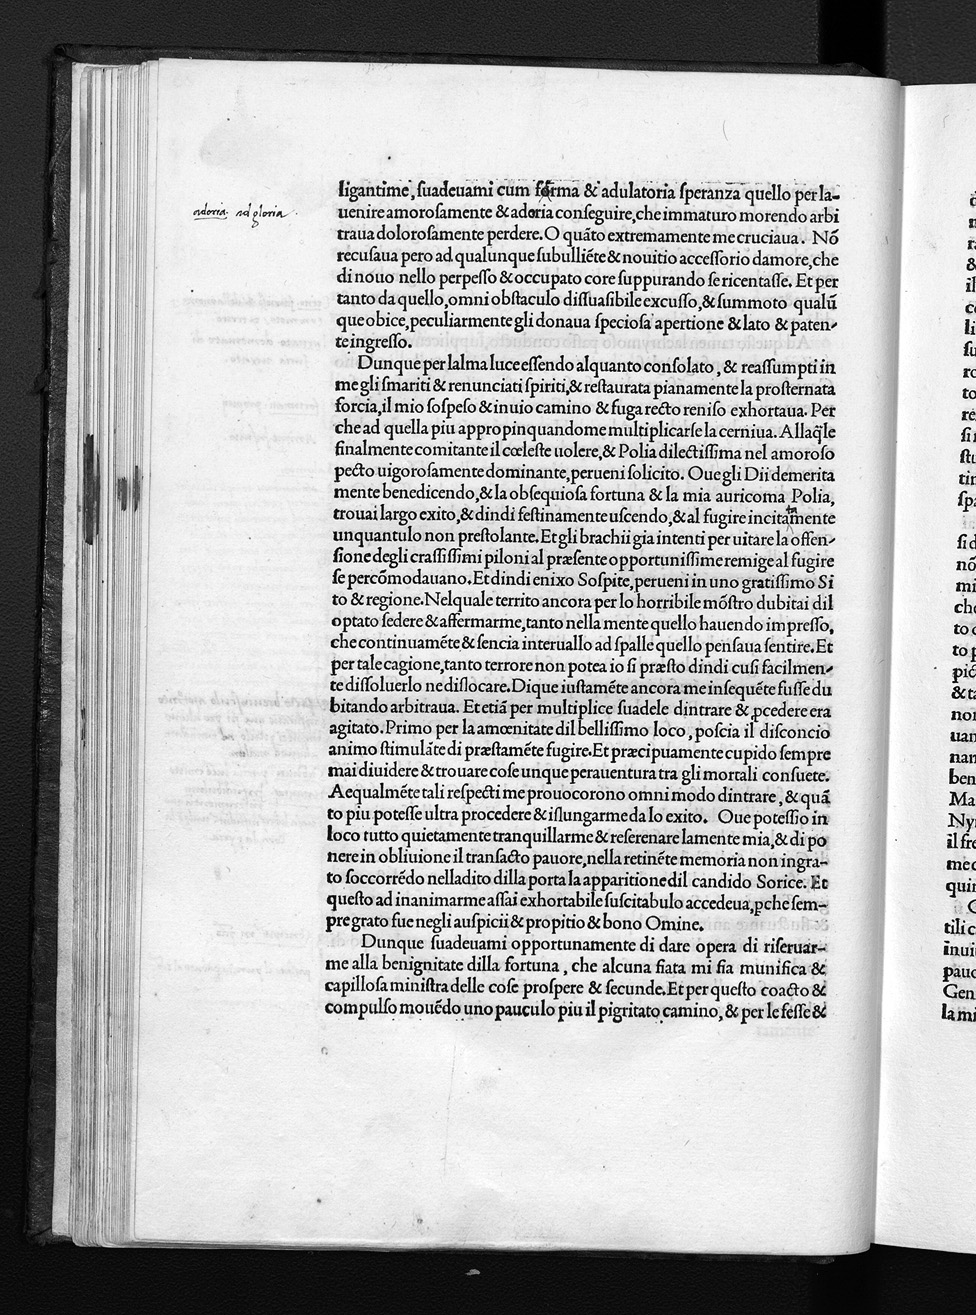 adoria. ad gloria.
ligantime, ſuadeuami cum ferma & adulatoria ſperanza quello per la-
uenire amoroſamente & adoria conſeguire, che immaturo morendo arbi
traua doloroſamente perdere. O quãto extremamente me cruciaua. Nõ
recuſaua pero ad qualunque ſubulliẽte & nouitio acceſſorio damore, che
di nouo nello perpeſſo & occupato core ſuppurando ſe ricentaſſe. Et per
tanto da quello, omni obſtaculo diſſuaſibile excuſſo, & ſummoto qualũ
que obice, peculiarmente gli donaua ſpecioſa apertione & lato & paten-
te ingreſſo.
Dunque per lalma luce eſſendo alquanto conſolato, & reaſſumpti in
me gli ſmariti & renunciati ſpiriti, & reſtaurata pianamente la proſternata
forcia, il mio ſoſpeſo & inuio camino & fuga recto reniſo exhortaua. Per
che ad quella piu appropinquandome multiplicarſe la cerniua. Alla q̃le
finalmente comitante il cœleſte uolere, & Polia dilectiſſima nel amoroſo
pecto uigoroſamente dominante, perueni ſolicito. Oue gli Dii demerita
mente benedicendo, & la obſequioſa fortuna & la mia auricoma Polia,
trouai largo exito, & dindi feſtinamente uſcendo, & al fugire incitamente
unquantulo non preſtolante. Et gli brachii gia intenti per uitare la offen-
ſione degli craſſiſſimi piloni al præſente opportuniſſime remige al fugire
ſe percõmodauano. Et dindi enixo Soſpite, perueni in uno gratiſſimo Si
to & regione. Nel quale territo ancora per lo horribile mõſtro dubitai dil
optato ſedere & affermarme, tanto nella mente quello hauendo impreſſo,
che continuamẽte & ſencia interuallo ad ſpalle quello penſaua ſentire. Et
per tale cagione, tanto terrore non potea io ſi præſto dindi cuſi facilmen-
te diſſoluerlo ne diſlocare. Di que iuſtamẽte ancora me inſequẽte fuſſe du
bitando arbitraua. Et etiã per multiplice ſuadele dintrare & ꝓcedere era
agitato. Primo per la amœnitate dil belliſſimo loco, poſcia il diſconcio
animo ſtimulãte di præſtamẽte fugire. Et præcipuamente cupido ſempre
mai diuidere & trouare coſe unque perauentura tra gli mortali conſuete.
Aequalmẽte tali reſpecti me prouocorono omni modo dintrare, & quã
to piu poteſſe ultra procedere & iſlungarme da lo exito. Oue poteſſio in
loco tutto quietamente tranquillarme & referenare lamente mia, & di po
nere in obliuione il tranſacto pauore, nella retinẽte memoria non ingra-
to ſoccorrẽdo nelladito dilla porta la apparitione dil candido Sorice. Et
queſto ad inanimarme aſſai exhortabile ſuſcitabulo accedeua, ꝑche ſem-
pre grato fue negli auſpicii & propitio & bono Omine.
Dunque ſuadeuami opportunamente di dare opera di riſeruar-
me alla benignitate dilla fortuna, che alcuna fiata mi ſia munifica &
capilloſa miniſtra delle coſe proſpere & ſecunde. Et per queſto coacto &
compulſo mouẽdo uno pauculo piu il pigritato camino, & per le feſſe &